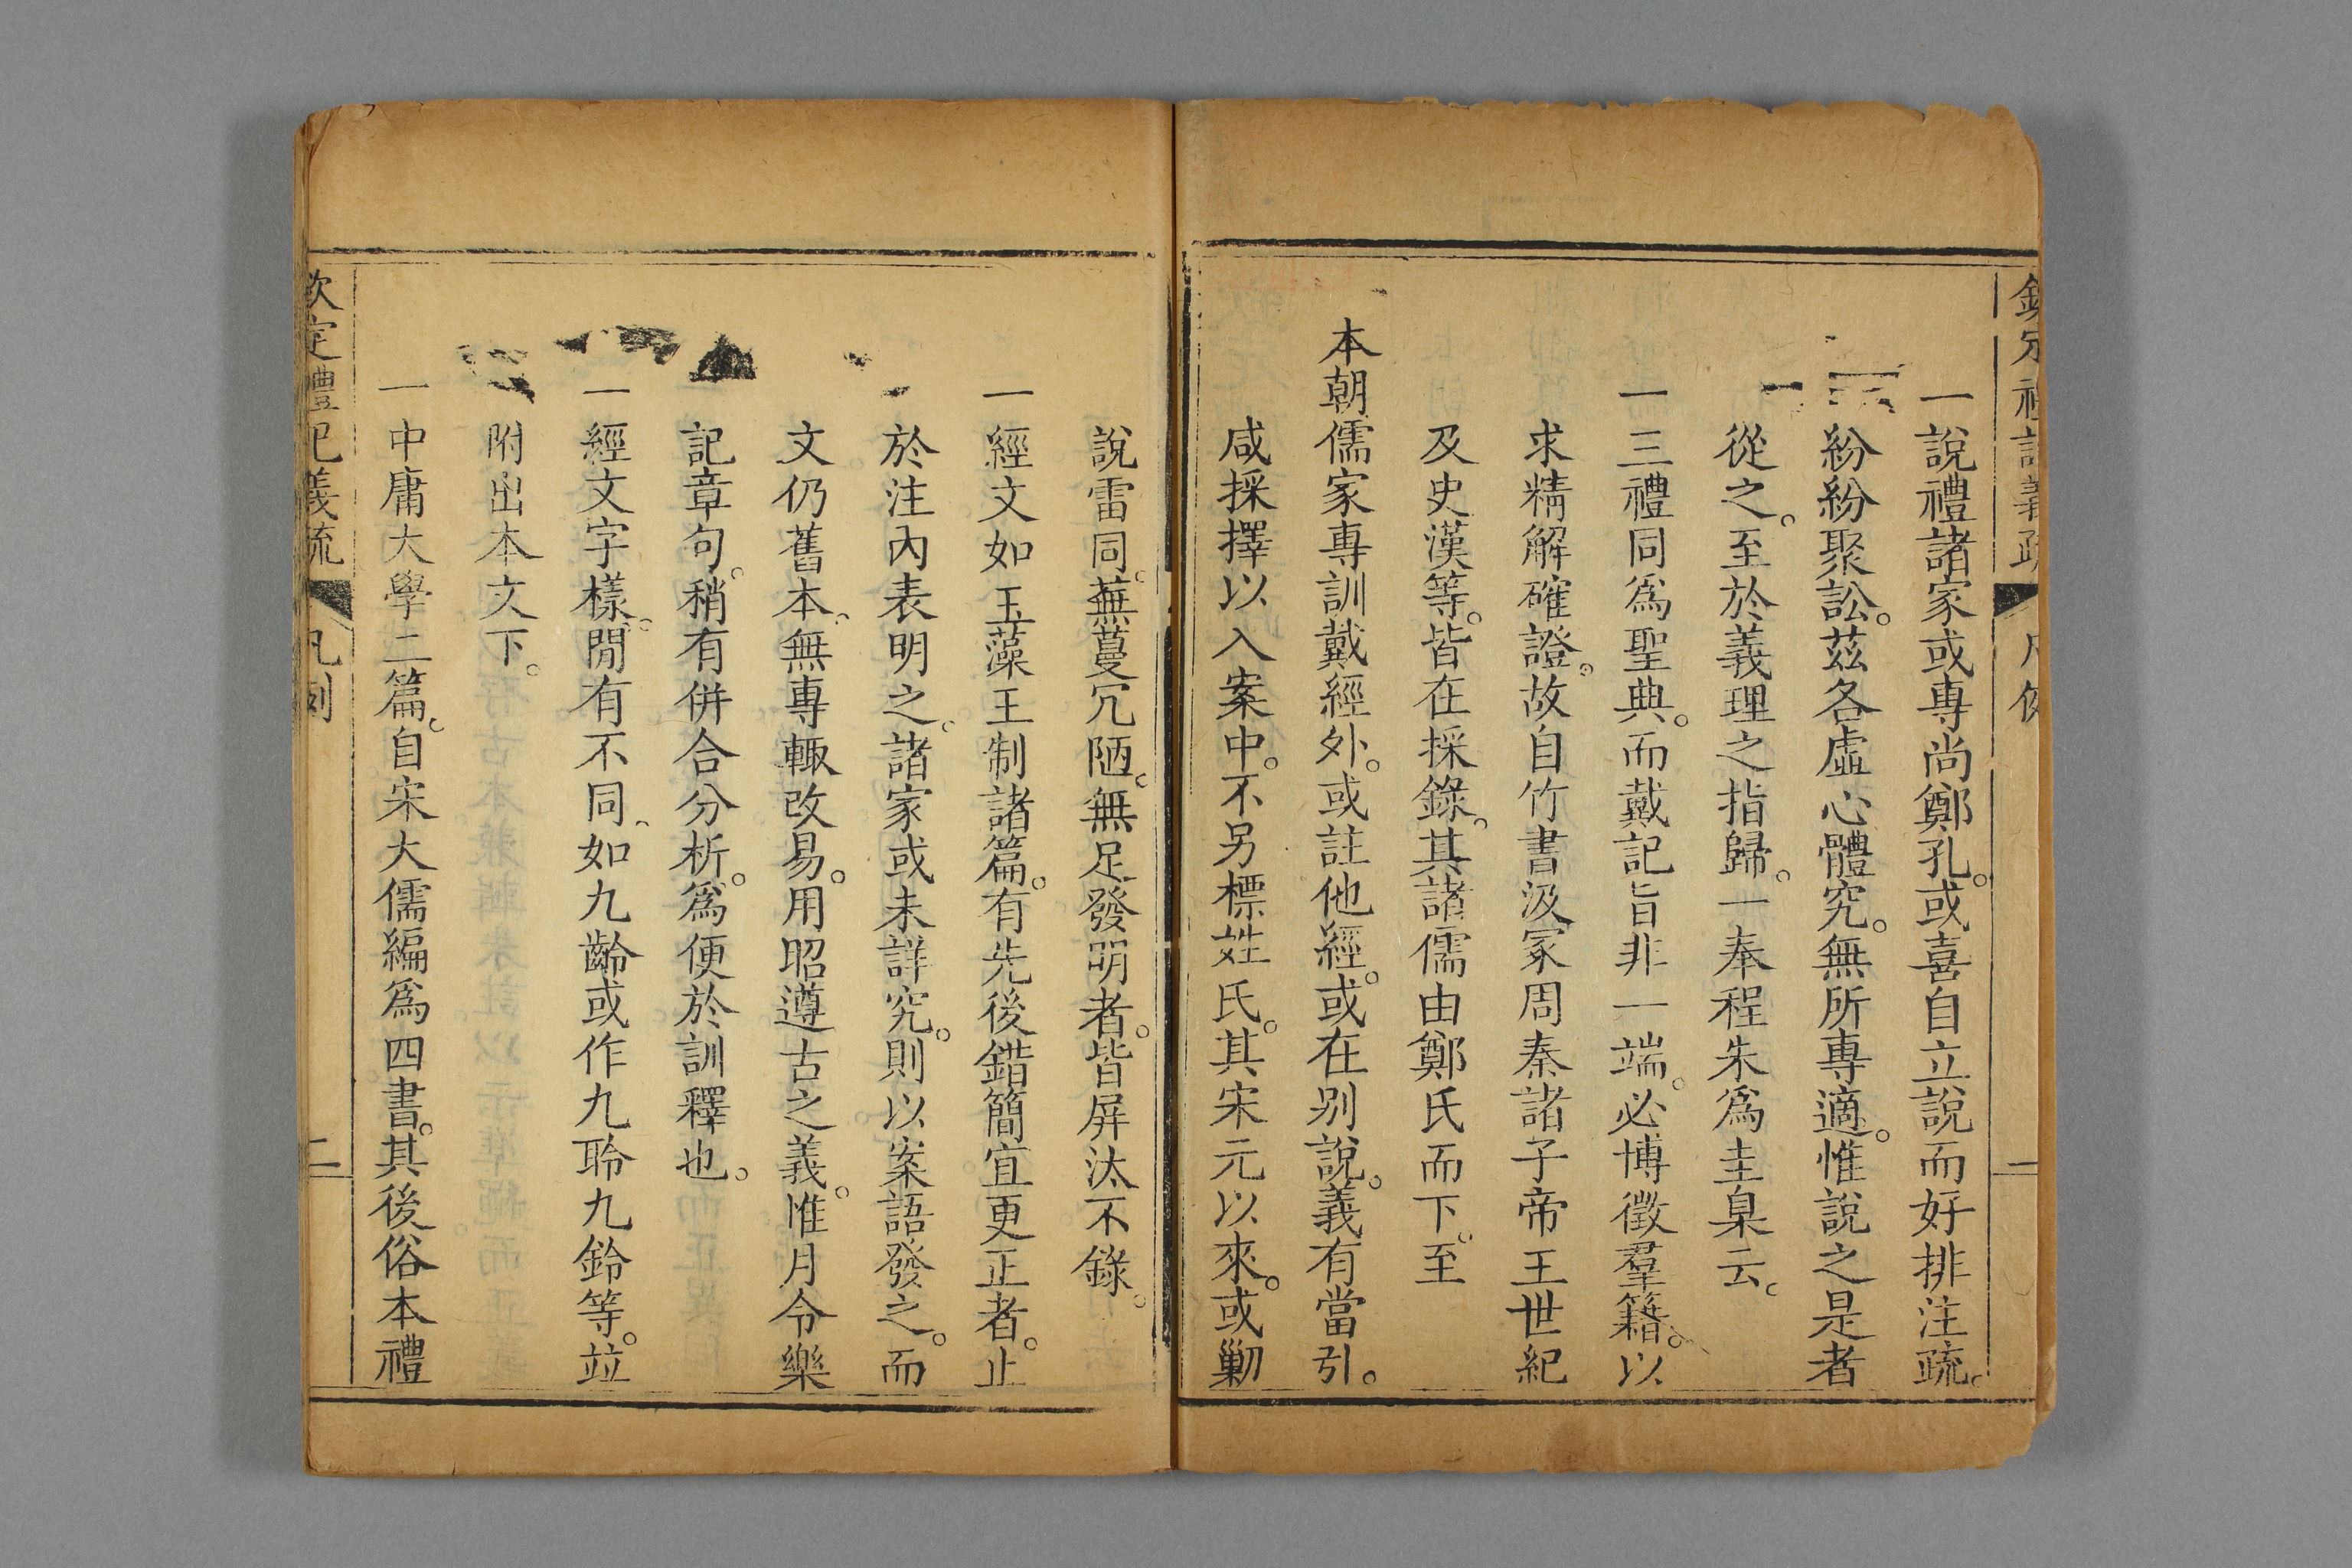 一說禮諸家或專尚鄭孔。或喜自立說而好排注疏。
紛紛聚訟。茲各虛心體究。無所專適。惟說之是者
從之。至於義理之指歸。一奉程朱爲圭臬云。
一三禮同爲聖典。而戴記旨非一端。必博徵羣籍。以
求精解確證。故自竹書汲冢周秦諸子帝王世紀
及史漢等。皆在採錄。其諸儒由鄭氏而下。至
本朝儒家專訓戴經外。或註他經。或在別說。義有當引。
咸採擇以入案中。不另標姓氏。其宋元以來。或勦
說雷同。蕪蔓冗陋。無足發明者。皆屏汰不錄。
一經文如玉藻王制諸篇。有先後錯簡宜更正者。止
於注內表明之。諸家或未詳究。則以案語發之。而
文仍舊本。無專輒改易。用昭遵古之義。惟月令樂
記章句。稍有併合分析。爲便於訓釋也。
一經文字樣。閒有不同。如九齡或作九聆九鈴等。竝
附出本文下。
一中庸大學二篇。自宋大儒編爲四書。其後俗本禮
欽定禮記義疏 凡例 二